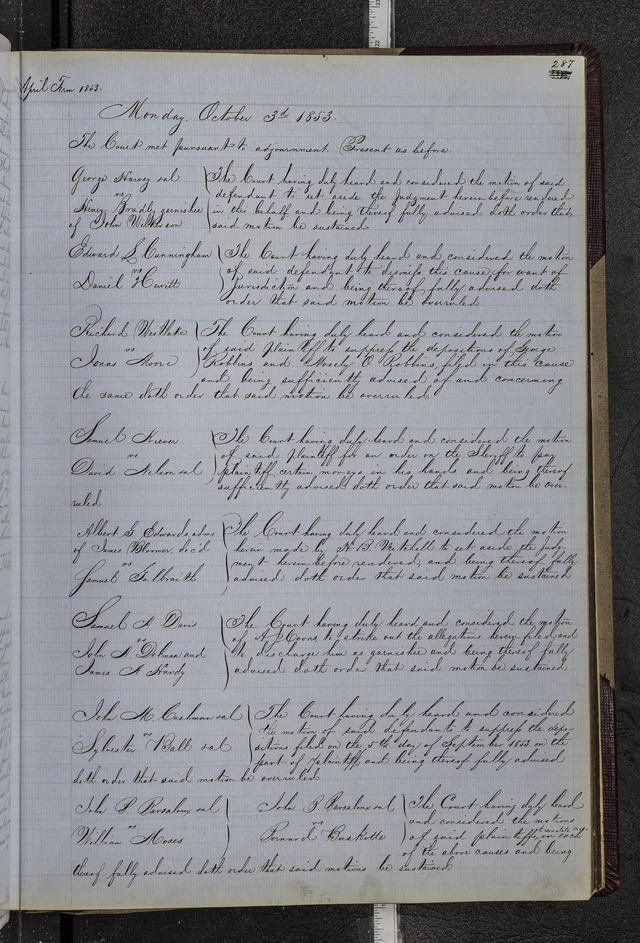 287
April Term 1853.
Monday, October 3d 1853.
The Court met pursuant to adjournment. Present as before.
George Harvey et al
vs
Henry Bradly garnishee
of John Wilkinson
The Court having duly heard and considered the motion of said
defendant to set aside the Judgment herein before rendered
in this behalf and being thereof fully advised doth order that
said motion be sustained
Edward L Cunningham
vs
Daniel Hewitt
The Court having duly heard and considered the motion
of said defendant to dismiss this cause for want of
jurisdiction and being thereof fully advised doth
order that said motion be overruled
Richard Westlake
vs
Jonas Moore
The Court having duly heard and considered the motion
of said plaintiff to suppress the depositions of George
Robbins and Mosely O Robbins, filed in this cause
and being sufficiently advised of and concerning
the same doth order that said motion be overruled
Samuel
vs
David Nelson et al
The Court having duly heard and considered the motion
of said plaintiff for an order on the Sheriff to pay
plaintiff certain moneys in his hands and being thereof
sufficiently advised doth order that said motion be over-
ruled
Albert G Edwards, admr
of James dec'd
vs
Samuel Galbraith
The Court having duly heard and considered the motion
herein made by A B Mitchell to set aside the Judg-
ment herein before rendered, and being thereof fully
advised doth order that said motion be sustained
Samuel A Davis
vs
John S and
James A Hardy
The Court having duly heard and considered the motion
of A J Coons to strike out the allegations herein filed and
to discharge him as garnishee and being thereof fully
advised doth order that said motion be sustained
John M Cashman et al
vs
Sylvester Ball et al
The Court having duly heard and considered
the motion of said defendants to suppress the depo-
sitions filed on the 5th day of September 1853 on the
part of Plaintiff, and being thereof fully advised
doth order that said motion be overruled
John P et al
vs
William Moses
John P et al
vs
Bernard
The Court having duly heard
and considered the motions
of said plaintiffs in each
of the above causes and being
thereof fully advised doth order that said motions be sustained